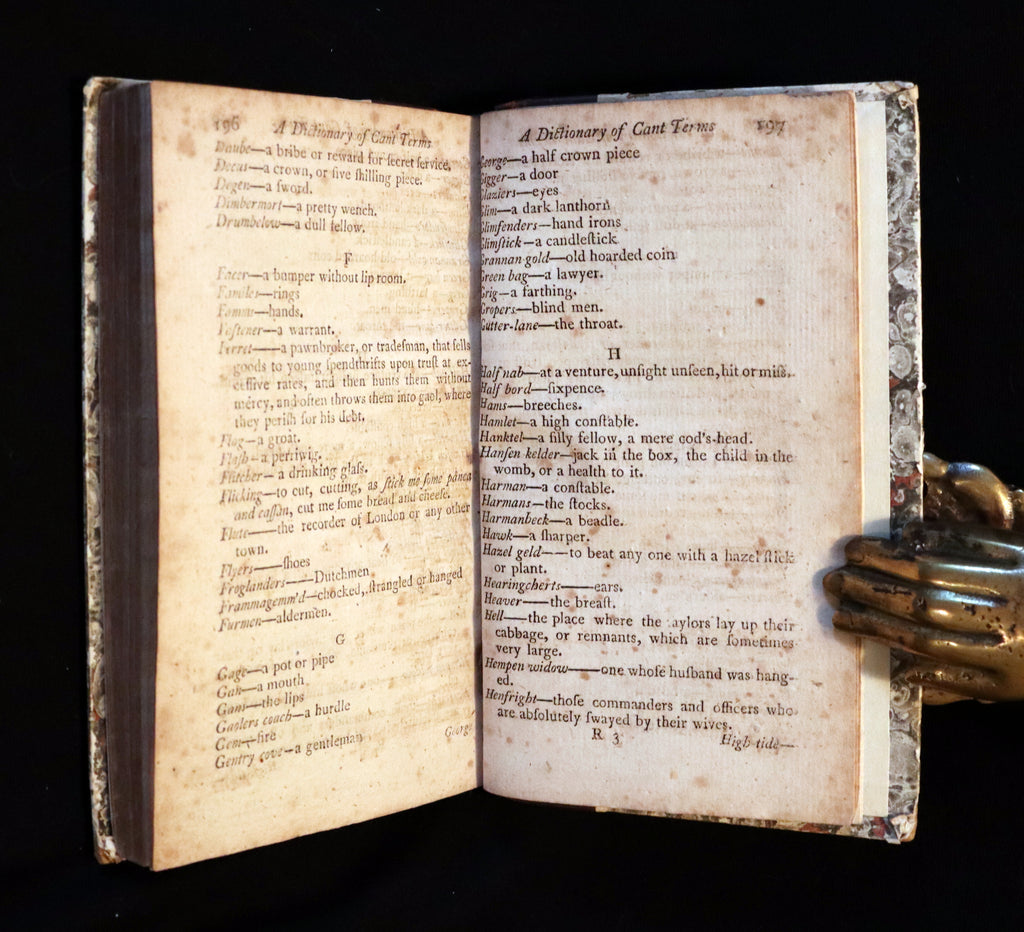 196 A Dictionary of Cant Terms
Daube—a bribe or reward for ſecret ſervice.
Decus—a crown, or five ſhilling piece.
Degen—a ſword.
Dimbermort—a pretty wench.
Drumbelow—a dull fellow.
F
Facer—a bumper without lip room.
Familes—rings
Famms—hands.
Faſtener—a warrant.
Ferret——a pawnbroker, or tradeſman, that ſells
goods to young ſpendthrifts upon truſt at ex-
ceſſive rates, and then hunts them without
mercy, and often throws them into gaol, where
they periſh for his debt.
Flag—a groat.
Flaſh—a perriwig.
Flitcher—a drinking glaſs.
Flicking—to cut, cutting, as ſtick me ſome panea
and caſſan, cut me ſome bread and cheeſe.
Flute——the recorder of London or any other
town.
Flyers——ſhoes
Froglanders——Dutchmen
Frammagemm'd—chocked, ſtrangled or hanged
Furmen—aldermen.
G
Gage—a pot or pipe
Gan—a mouth
Gans—the lips
Gaolers coach—a hurdle
Gem—fire
Gentry cove—a gentleman
George
A Dictionary of Cant Terms 197
George—a half crown piece
Gigger—a door
Glaziers—eyes
Glim—a dark lanthorn
Glimfenders—hand irons
Glimſtick—a candleſtick
Grannan gold—old hoarded coin
Green bag—a lawyer.
Grig—a farthing.
Gropers—blind men.
Gutter-lane—the throat.
H
Half nab—at a venture, unſight unſeen, hit or miſs.
Half bord—ſixpence.
Hams—breeches.
Hamlet—a high conſtable.
Hanktel—a ſilly fellow, a mere cod's-head.
Hanſen kelder—jack in the box, the child in the
womb, or a health to it.
Harman—a conſtable.
Harmans—the ſtocks.
Harmanbeck—a beadle.
Hawk—a ſharper.
Hazel geld——to beat any one with a hazel ſtick
or plant.
Hearingcherts——ears.
Heaver——the breaſt.
Hell——the place where the aylors lay up their
cabbage, or remnants, which are ſometimes
very large.
Hempen widow——one whoſe huſband was hang-
ed.
Henfright—thoſe commanders and officers who
are abſolutely ſwayed by their wives.
R 3 High-tide—